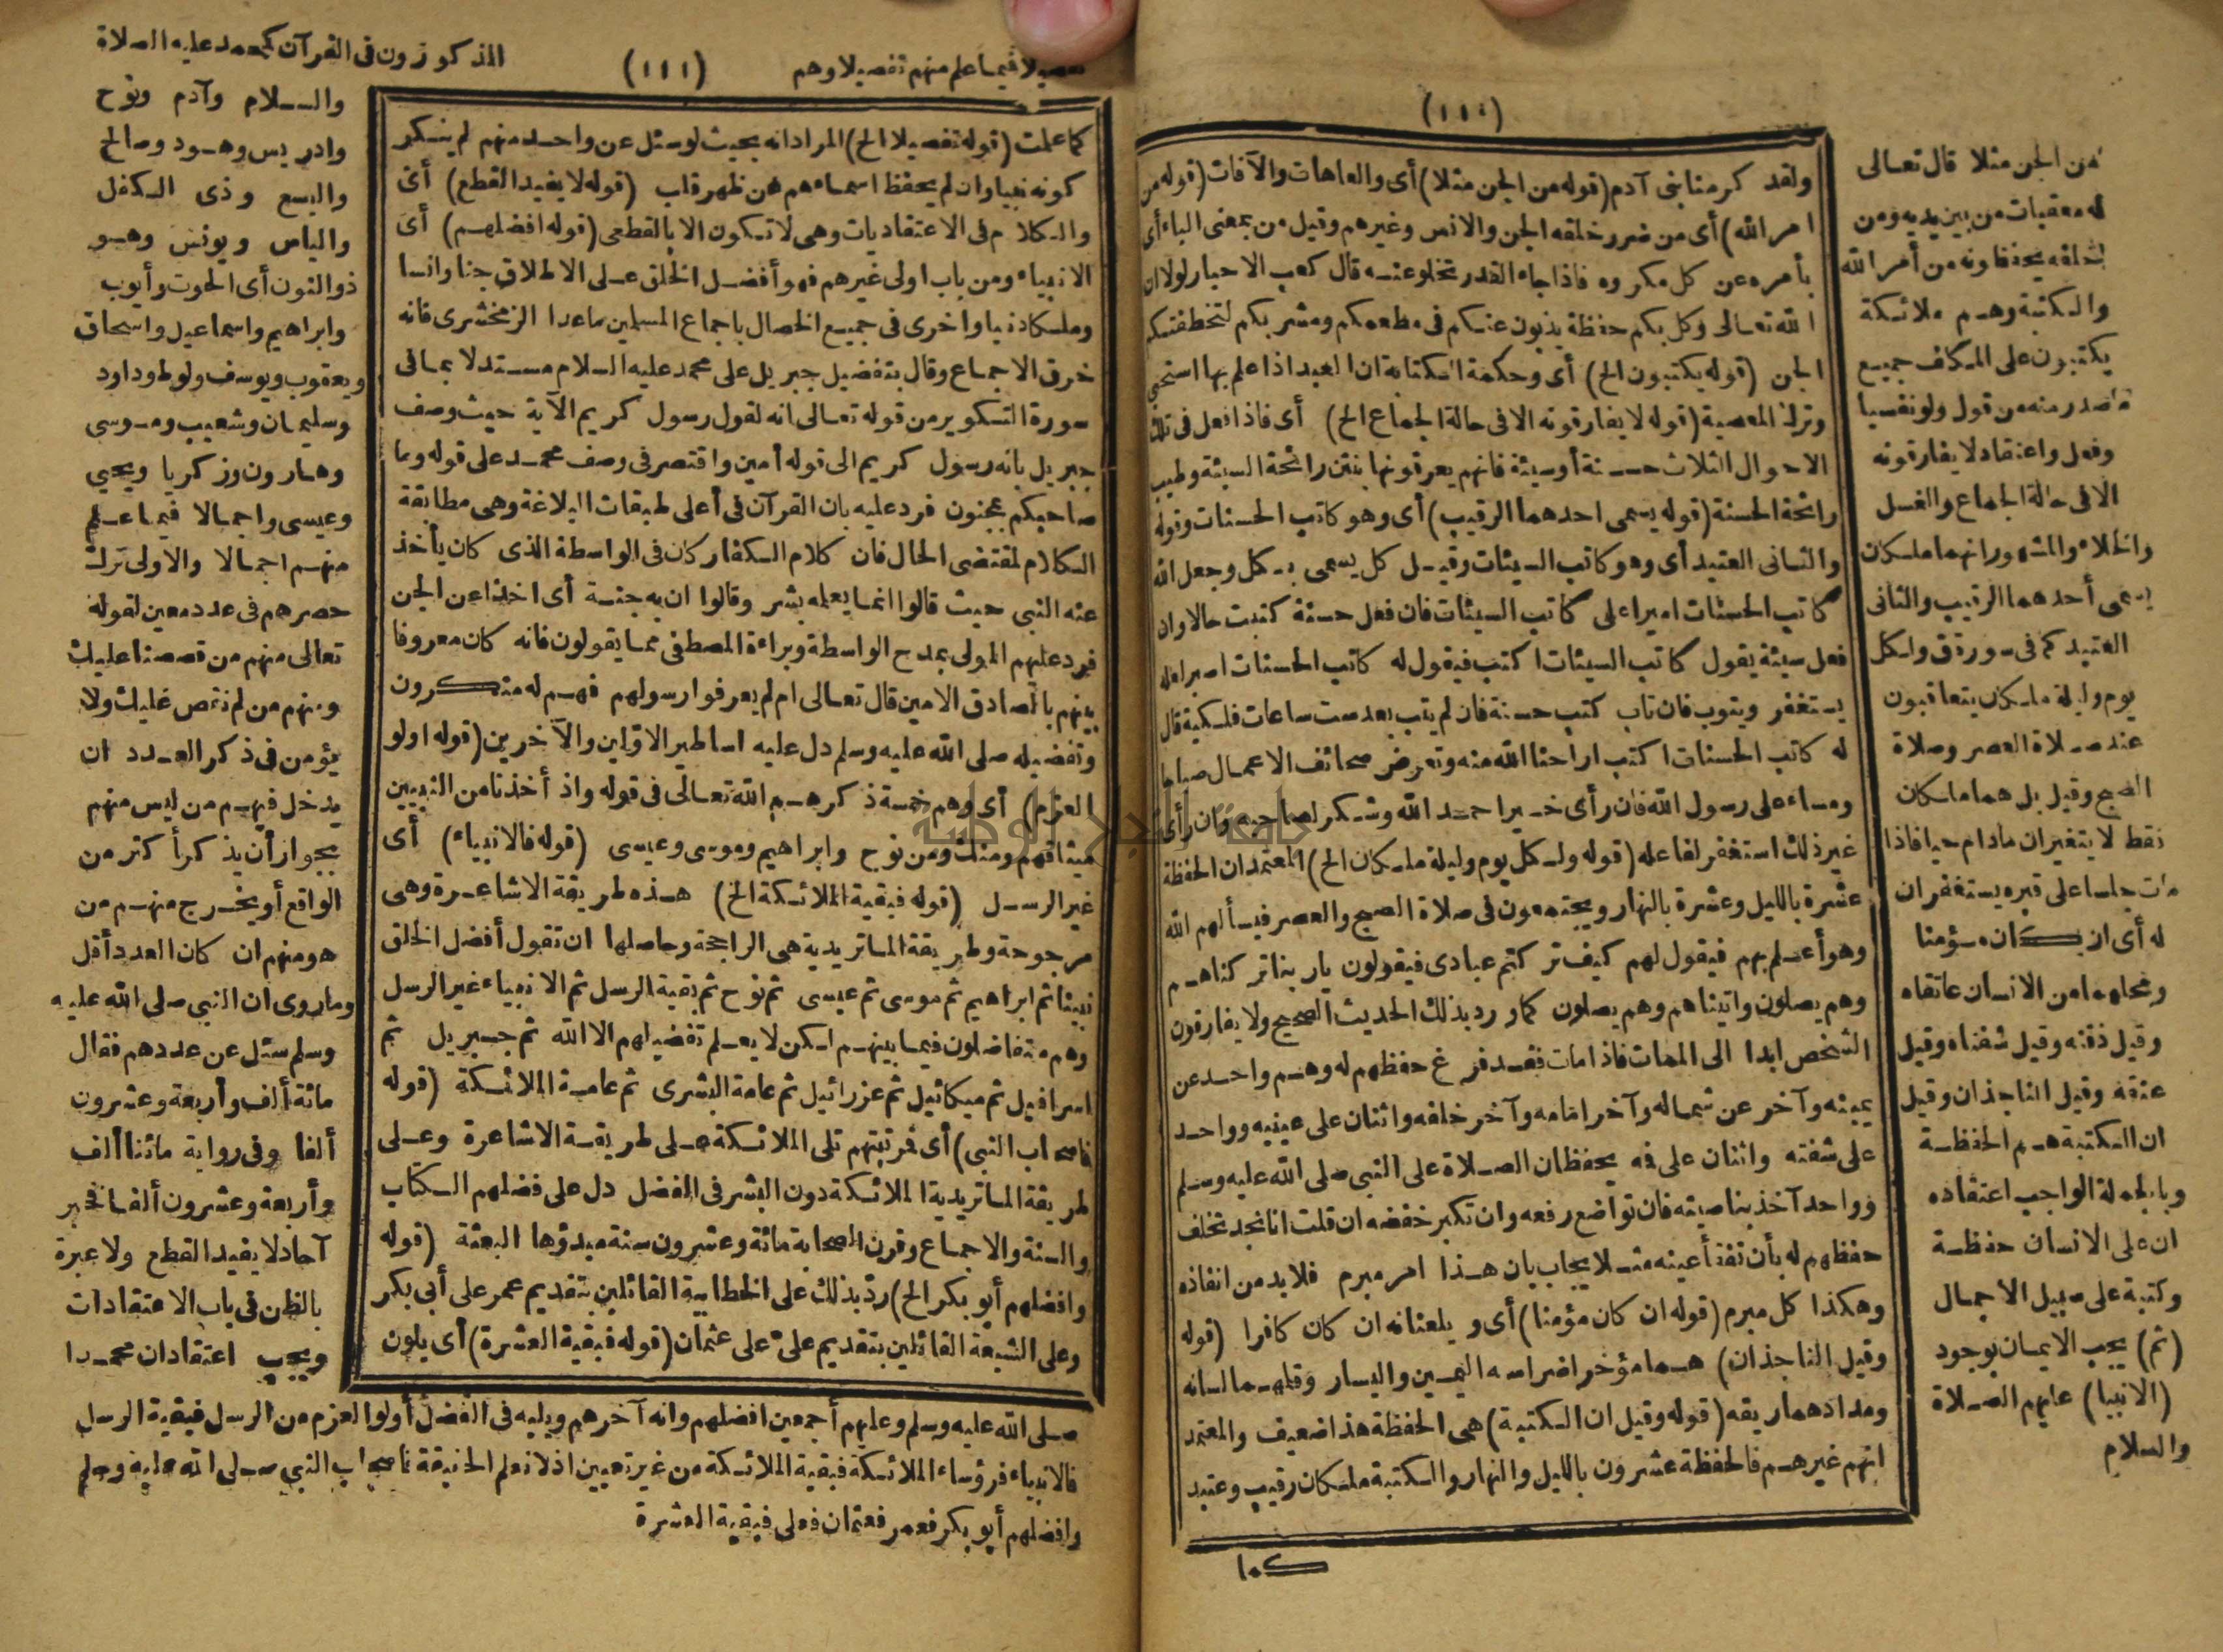 (١١٠)
من الجن مثلا قال تعالى
له معقبات من بين يديه ومن
خلفه يحفظونه من أمر الله
والكتبة وهم ملائكة
يكتبون على المكلف جميع
ما صدر منه من قول ولو نفسيا
وفعل واعتقاد لا يفارقونه
الا فى حالة الجماع والغسل
والخلاء والمشهور انهما ملكان
يسمى أحدهما الرقيب والثانى
العتيد كما فى سورة ق ولكل
يوم وليلة ملكان يتعاقبون
عند صلاة العصر وصلاة
الصبح وقيل بل هما ملكان
فقط لا يتغيران مادام حيا فاذا
مات جلسا على قبره يستغفران
له أى ان كان مؤمنا
ومحلهما من الانسان عاتقاه
وقيل ذقنه وقيل شفتاه وقيل
عنقه وقيل الناجذان وقيل
ان الكتبة هم الحفظة
وبالجملة الواجب اعتقاده
ان على الانسان حفظة
وكتبة على سبيل الاجمال
(ثم) يجب الايمان بوجود
(الانبيا) عليهم الصلاة
والسلام
ولقد كرمنا بنى آدم (قوله من الجن مثلا) أى والعاهات والآفات (قوله من
امر الله) أى من ضرر خلقه الجن والانس وغيرهم وقيل من بمعنى الباء أى
بأمره عن كل مكروه فاذا جاء القدر تخلو عنه قال كعب الاحبار لولا ان
الله تعالى وكل بكم حفظة يذبون عنكم فى مطعمكم ومشربكم لتخطفتكم
الجن (قوله يكتبون الخ) أى وحكمة الكتابة ان العبد اذا علم بها استحى
وترك المعصية (قوله لا يفارقونه الا فى حالة الجماع الخ) أى فاذا فعل فى تلك
الاحوال الثلاث حسنة أو سيئة فانهم يعرفونها بنتن رائحة السيئة وطيب
رائحة الحسنة (قوله يسمى احدهما الرقيب) أى وهو كاتب الحسنات وقوله
والثانى العتيد أى وهو كاتب السيئات وقيل كل يسمى بكل وجعل الله
كاتب الحسنات اميرا على كاتب السيئات فان فعل حسنة كتبت حالا وان
فعل سيئة يقول كاتب السيئات اكتب فيقول له كاتب الحسنات اصبر لعله
يستغفر ويتوب فان تاب كتب حسنة فان لم يتب بعد ست ساعات فلكية قال
له كاتب الحسنات اكتب اراحنا الله منه وتعرض صحائف الاعمال صباحا
ومساء على رسول الله فان رأى خيرا حمد الله وشكر لصاحبه وان رأى
غير ذلك استغفر لفاعله (قوله ولكل يوم وليلة ملكان الخ) المعتمد ان الحفظة
عشرة بالليل وعشرة بالنهار ويجتمعون فى صلاة الصبح والعصر فيسألهم الله
وهو أعلم بهم فيقول لهم كيف تركتم عبادى فيقولون يار بنا تركناهم
وهم يصلون واتيناهم وهم يصلون كما ورد بذلك الحديث الصحيح ولا يفارقون
الشخص ابدا الى الممات فاذا مات فقد فرغ حفظهم له وهم واحد عن
يمينه وآخر عن شماله وآخر امامه وآخر خلفه واثنان على عينيه وواحد
على شفته واثنان على فيه يحفظان الصلاة على النبى صلى الله عليه وسلم
وواحد آخذ بناصيته فان تواضع رفعه وان تكبر خفضه ان قلت انا نجد تخلف
حفظهم له بأن تفقأ عينه مثلا يجاب بان هذا امر مبرم فلا بد من انفاذه
وهكذا كل مبرم (قوله ان كان مؤمنا) أى ويلعنانه ان كان كافرا (قوله
وقيل الناجذان) هما مؤخر اضراسه اليمين واليسار وقلمهما لسانه
ومدادهما ريقه (قوله وقيل ان الكتبة) هى الحفظة هذا ضعيف والمعتمد
انهم غيرهم فالحفظة عشرون بالليل والنهار والكتبة ملكان رقيب وعتيد
كما
تفصيلا فيما علم منهم تفصيلا وهم (١١١) المذكورون فى القرآن كمحمد عليه الصلاة
والسلام وآدم ونوح
وادريس وهود وصالح
واليسع وذى الكفل
والياس ويونس وهو
ذو النون أى الحوت وأيوب
وابراهيم واسماعيل واسحاق
ويعقوب ويوسف ولوط وداود
وسليمان وشعيب وموسى
وهارون وزكريا ويحيي
وعيسى واجمالا فيما علم
منهم اجمالا والاولى ترك
حصرهم فى عدد معين لقوله
تعالى منهم من قصصنا عليك
ومنهم من لم نقصص عليك ولا
يؤمن فى ذكر العدد ان
يدخل فيهم من ليس منهم
بجواز أن يذكر أكثر من
الواقع أو يخرج منهم من
هو منهم ان كان العدد أقل
وما روى ان النبى صلى الله عليه
وسلم سئل عن عددهم فقال
مائة ألف وأربعة وعشرون
ألفا وفى رواية مائتا ألف
وأربعة وعشرون ألفا فخبر
آحاد لا يفيد القطع ولا عبرة
بالظن فى باب الاعتقادات
ويجب اعتقاد ان محمدا
كما علمت (قوله تفصيلا الخ) المراد انه بحيث لو سئل عن واحد منهم لم ينكر
كونه نبيا وان لم يحفظ اسماءهم عن ظهر قلب (قوله لا يفيد القطع) أى
والكلام فى الاعتقاديات وهى لا تكون الا بالقطعى (قوله افضلهم) أى
الانبياء ومن باب اولى غيرهم فهو أفضل الخلق على الاطلاق جنا وانسا
وملكا دنيا واخرى فى جميع الخصال باجماع المسلمين ماعدا الزمخشرى فانه
خرق الاجماع وقال بتفضيل جبريل على محمد عليه السلام مستدلا بما فى
سورة التكوير من قوله تعالى انه لقول رسول كريم الآية حيث وصف
جبريل بانه رسول كريم الى قوله أمين واقتصر فى وصف محمد على قوله وما
صاحبكم بمجنون فرد عليه بان القرآن فى أعلى طبقات البلاغة وهى مطابقة
الكلام لمقتضى الحال فان كلام الكفار كان فى الواسطة الذى كان يأخذ
عنه النبي حيث قالوا انما يعلمه بشر وقالوا ان به جنة أى اخذا عن الجن
فرد عليهم المولى بمدح الواسطة وبراءة المصطفى مما يقولون فانه كان معروفا
بينهم بالصادق الامين قال تعالى ام لم يعرفوا رسولهم فهم له منكرون
وتفضيله صلى الله عليه وسلم دل عليه اساطير الاولين والآخرين (قوله اولو
العزم) أى وهم خمسة ذكرهم الله تعالى فى قوله واذ أخذنا من النبيين
ميثاقهم ومنك ومن نوح وابراهيم وموسى وعيسى (قوله فالانبياء) أى
غير الرسل (قوله فبقية الملائكة الخ) هذه طريقة الاشاعرة وهى
مرجوحة وطريقة الماتريدية هى الراجحة وحاصلها ان تقول أفضل الخلق
نبينا ثم ابراهيم ثم موسى ثم عيسى ثم نوح ثم بقية الرسل ثم الانبياء غير الرسل
وهم متفاضلون فيما بينهم لكن لا يعلم تفضيلهم الا الله ثم جبريل ثم
اسرافيل ثم ميكائيل ثم عزرائيل ثم عامة البشرى ثم عامة الملائكة (قوله
فاصحاب النبى) أى فمرتبتهم تلى الملائكة على طريقة الاشاعرة وعلى
طريقة الماتريدية الملائكة دون البشر فى الفضل دل على فضلهم الكتاب
والسنة والاجماع وقرن الصحابة مائة وعشرون سنة مبدؤها البعثة (قوله
وافضلهم أبو بكر الخ) رد بذلك على الخطابية القائلين بتقديم عمر على أبى بكر
وعلى الشيعة القائلين بتقديم على على عثمان (قوله فبقية العشرة) أى يلون
صلى الله عليه وسلم وعليهم أجمعين افضلهم وانه آخرهم ويليه فى الفضل أولو العزم من الرسل فبقية الرسل
فالانبياء فرؤساء الملائكة فبقية الملائكة من غير تعيين اذ لا نعلم الحقيقة فاصحاب النبي صلى الله عليه وسلم
وافضلهم أبو بكر فعمر فعثمان فعلى فبقية العشرة